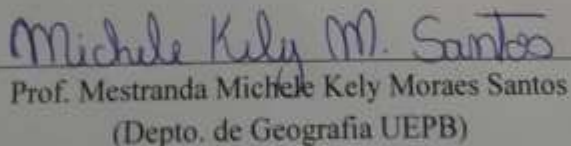 Michele Kely M. Santos
Prof. Mestranda Michele Kely Moraes Santos
(Depto. de Geografia UEPB)